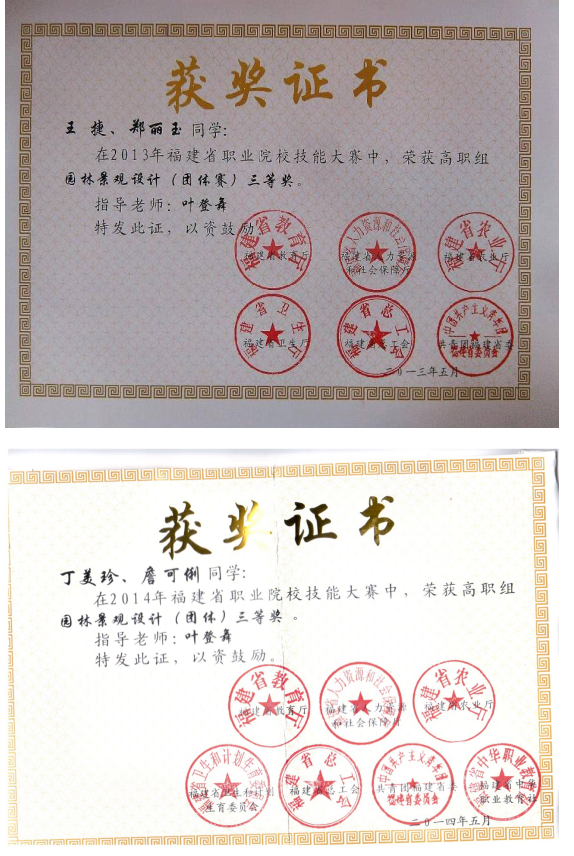 获奖证书
王 捷、郑丽玉 同学:
在2013年福建省职业院校技能大赛中，荣获高职组
园林景观设计（团体赛）三等奖。
指导老师：叶登舞
特发此证，以资鼓励。
福建省教育厅
福建省人力资源和社会保障厅
福建省农业厅
福建省卫生厅
福建省总工会
共青团福建省委
中国共产主义青年团
福建省委员会
二〇一三年五月
获奖证书
丁美珍、詹可俐 同学:
在2014年福建省职业院校技能大赛中，荣获高职组
园林景观设计（团体）三等奖 。
指导老师：叶登舞
特发此证，以资鼓励。
福建省教育厅
福建省人力资源
和社会保障厅
福建省农业厅
福建省卫生和计划
生育委员会
福建省总工会
共青团福建省委
中国共产主义青年团
福建省委员会
福建省中华
职业教育社
二〇一四年五月